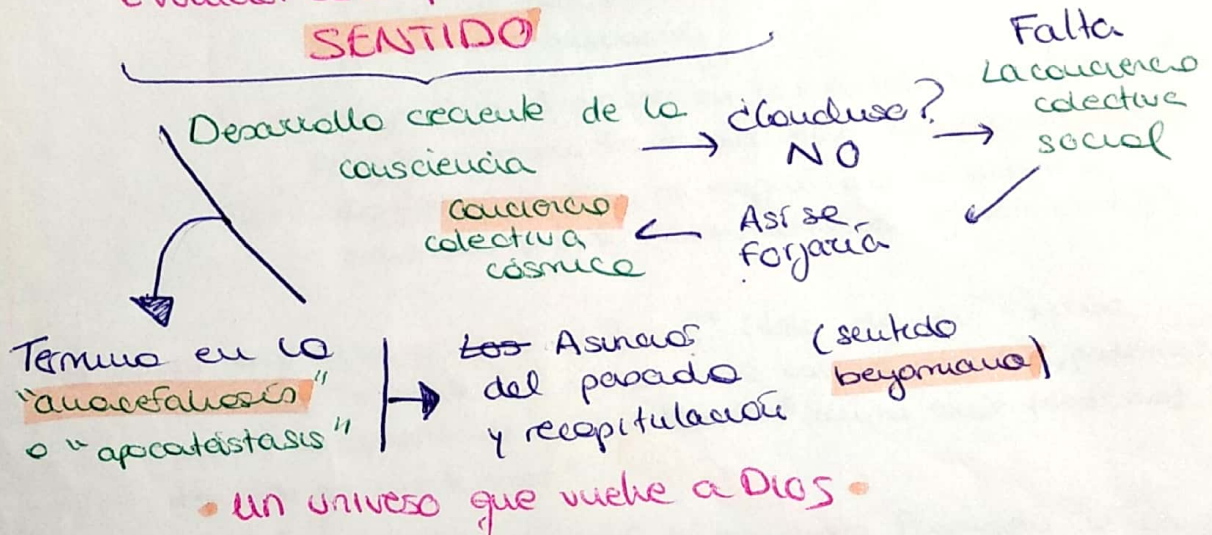 SENTIDO
Desarrollo creciente de la
consciencia
¿Concluso?
NO
Falta
La conciencia
colectiva
social
Así se
forjaría
conciencia
colectiva
cósmica
Termina en la
"anacefaliosis"
o "apocatástasis"
Los Asunción
del pasado
y recapitulación
(sentido
bergsoniano)
• un universo que vuelve a DIOS •